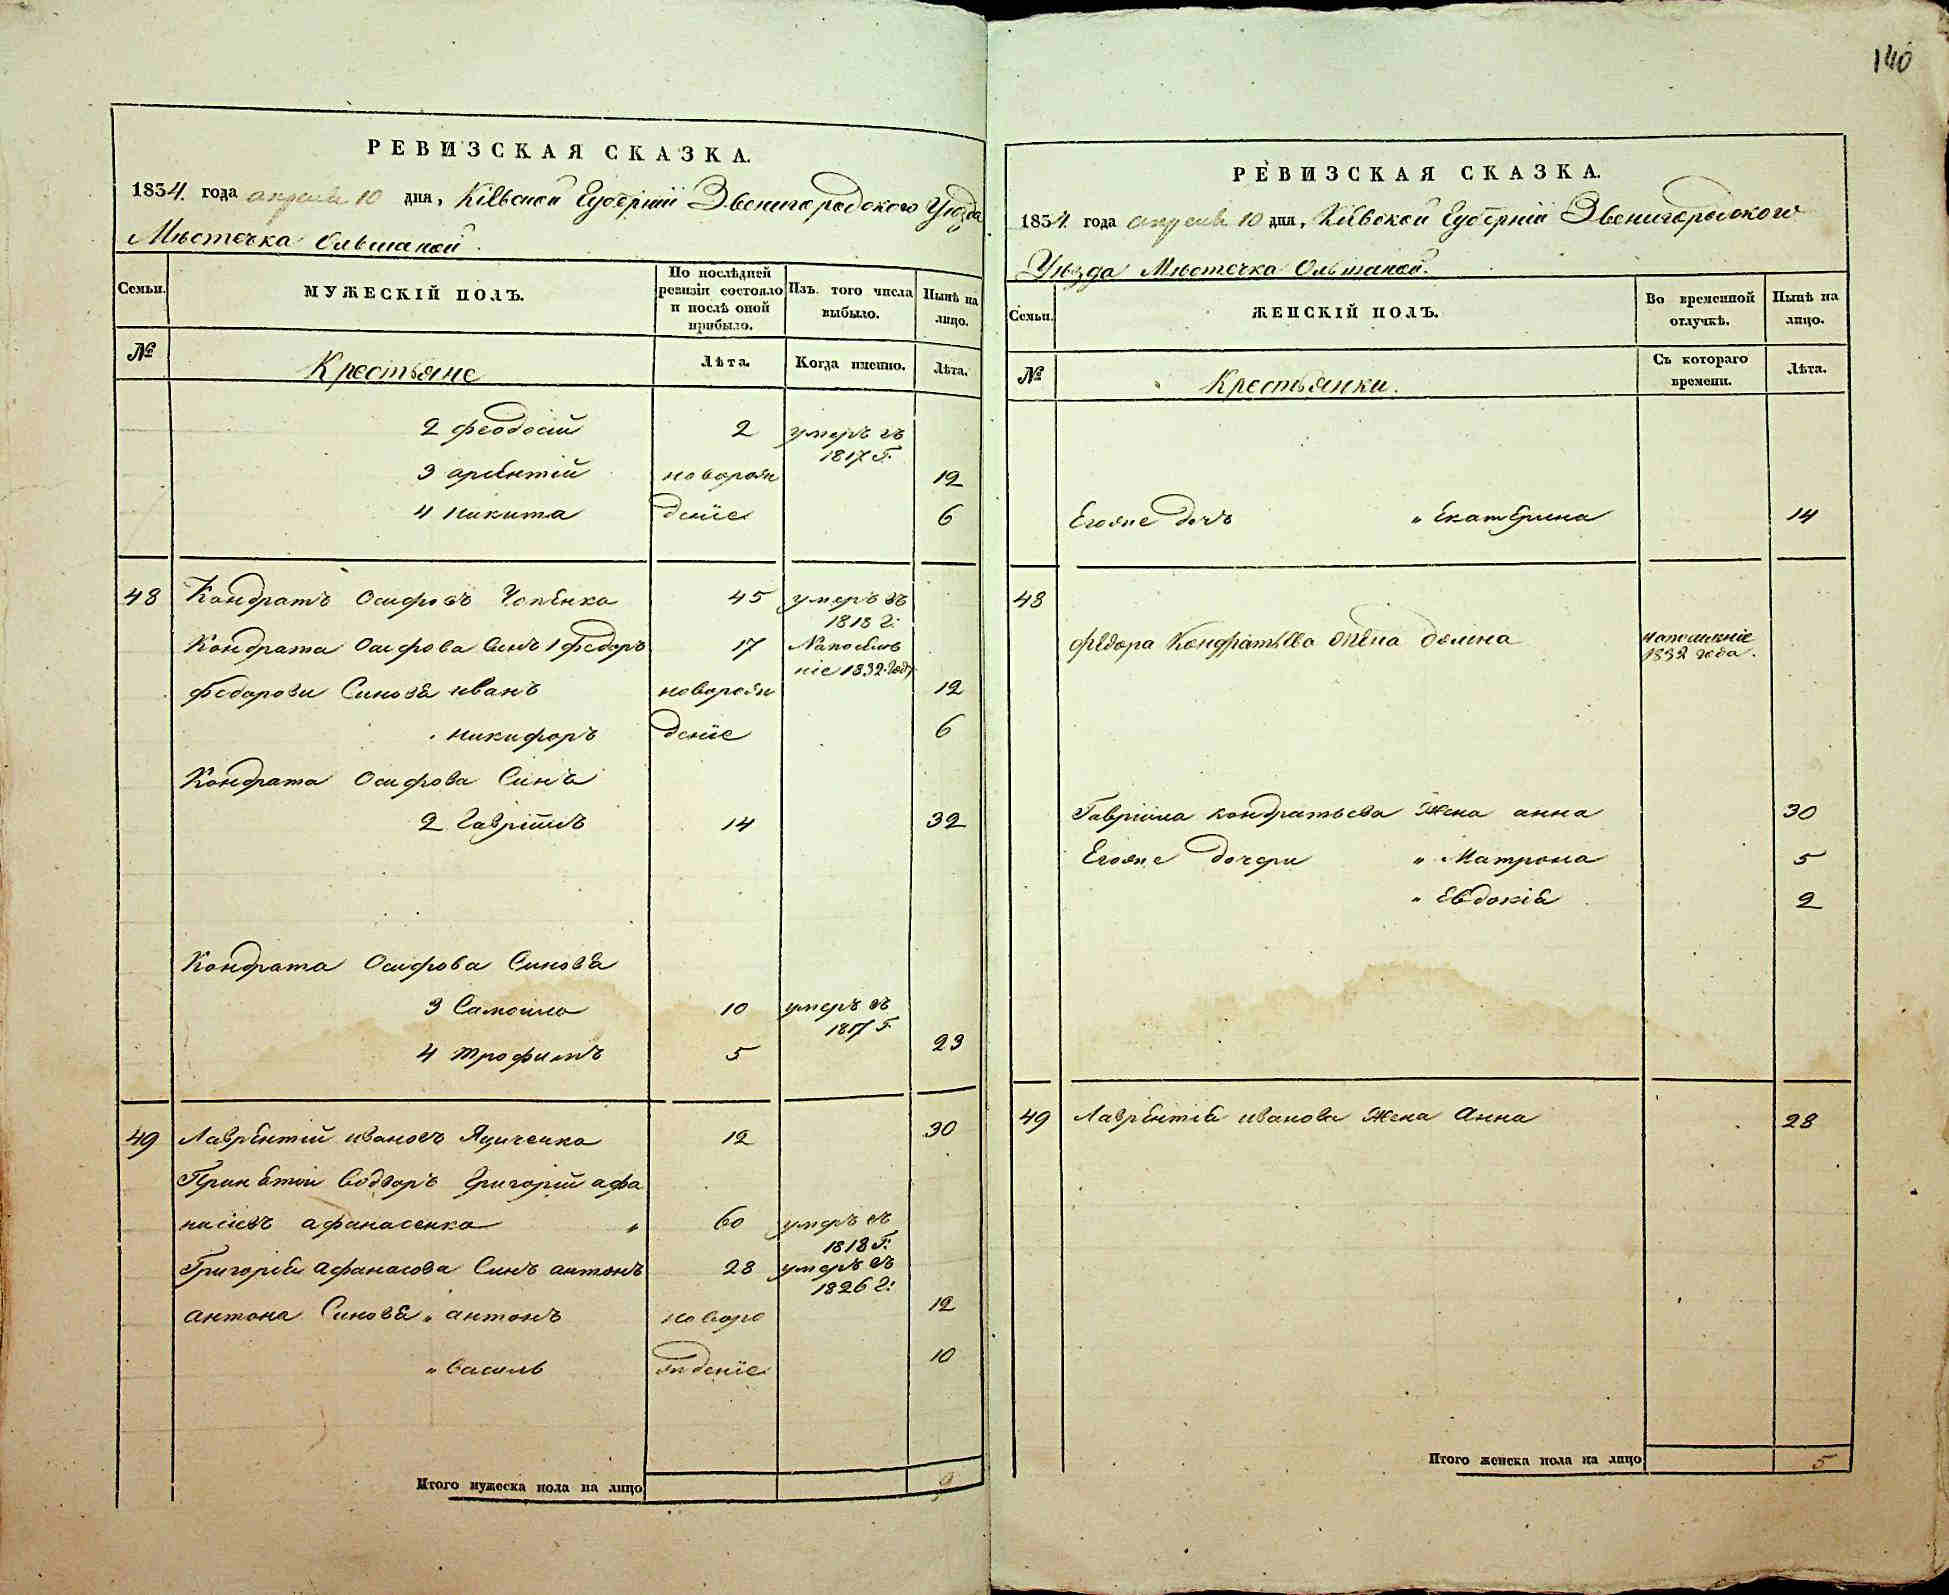 140
РЕВИЗСКАЯ СКАЗКА.
1834. года апреля 10 дня, Кіевской Губерніи Звенигородского Уѣзда
Мѣстечка Ольшаной.
Семьи.
МУЖЕСКІЙ ПОЛЪ.
По послѣдней ревизіи состояло и послѣ оной прибыло.
Изъ того числа выбыло.
Нынѣ на лицо.
№
Крестьяне
Лѣта.
Когда именно.
Лѣта.
2 Феодосій 2 умеръ въ 1817 Г.
3 арсѣнтій новорож 12
4 никита деніе 6
48 Кондратъ Осифовъ Чепѣнко 45 умеръ въ 1818 г:
Кондрата Осифова Синъ 1 Федоръ 17 Напосѣле ніе 1832. Году
Федорови Синовя иванъ новорож 12
никифоръ деніе 6
Кондрата Осифова Синъ
2 Гавріилъ 14 32
Кондрата Осифова Синовя
3 Самоило 10 умеръ въ 1817 Г.
4 трофимъ 5 23
49 Лаврѣнтій ивановъ Яциченко 12 30
Принятой Водворъ Григорій афа
насіевъ афанасенко " 60 умеръ въ 1818 Г:
Григорія афанасова Синъ антонъ 28 умеръ въ 1826 г:
антона Синовя " антонъ новоро 12
" василь жденіе 10
Итого мужеска пола на лицо 9
РЕВИЗСКАЯ СКАЗКА.
1834. года апреля 10 дня, Кіевской Губерніи Звенигородского
Уѣзда Мѣстечка Ольшаной.
Семьи.
ЖЕНСКІЙ ПОЛЪ.
Во временной отлучкѣ.
Нынѣ на лицо.
№
Крестьянки.
Съ котораго времени.
Лѣта.
Егоже дочъ " Екатѣрина 14
48
Фѣдора Кондратьева жена домна напоселеніе 1832 года.
Гавріила кондратьева Жена анна 30
Егоже дочери " Матрона 5
" Евдокія 2
49 Лаврѣнтія иванова Жена Анна 28
Итого женска пола на лицо 5